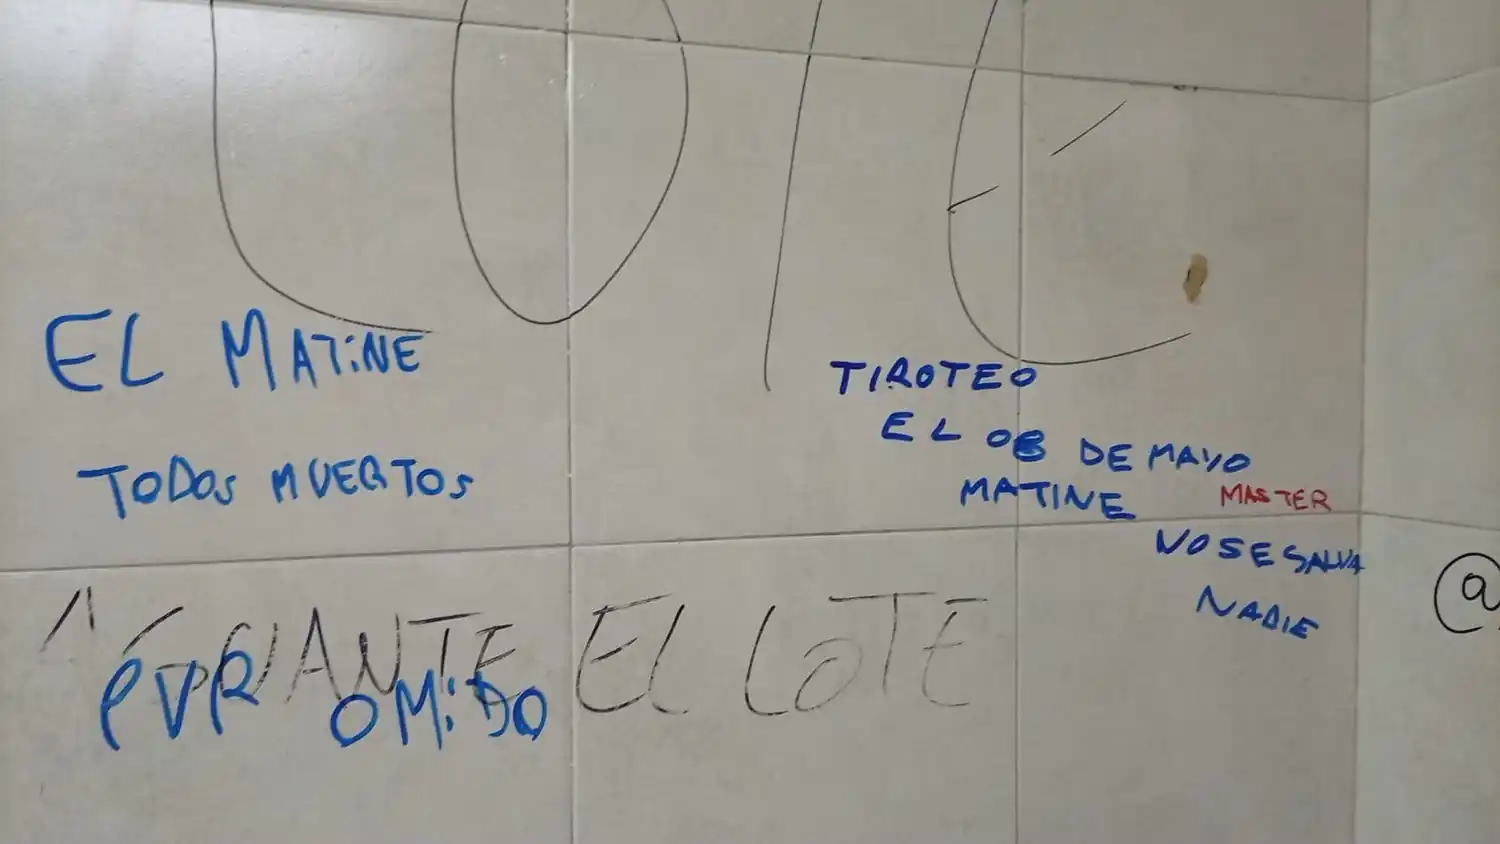 LOTE
EL MATiNE
TODOS MUERTOS
TIROTEO
EL 08 DE MAYO
MATINE
MASTER
NO SE SALVA
NADIE
AGUANTE EL LOTE
PUR OMiDO
@